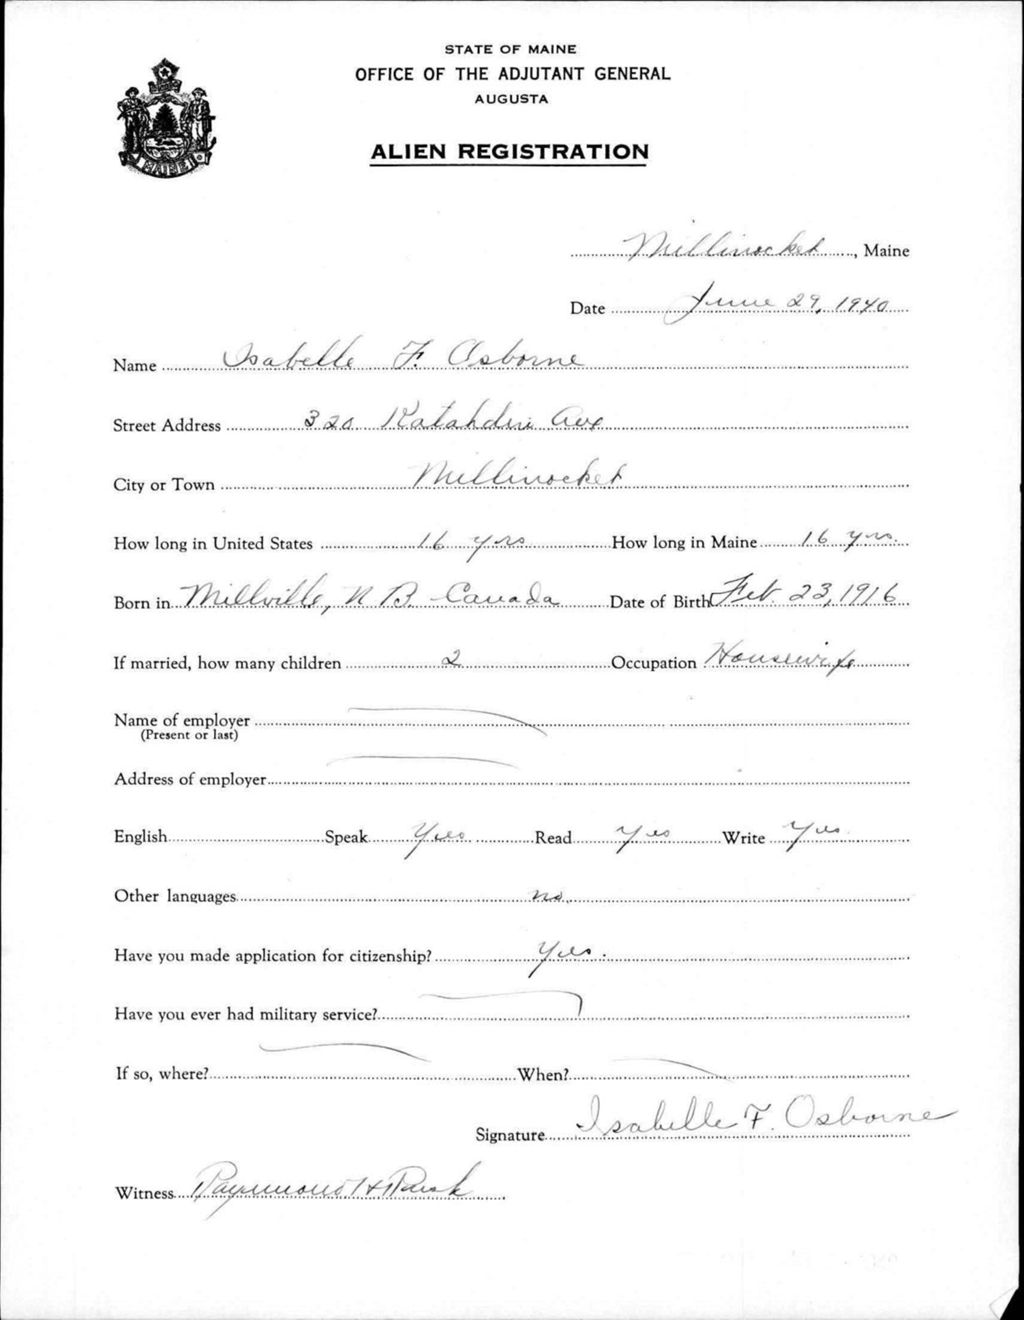 STATE OF MAINE
OFFICE OF THE ADJUTANT GENERAL
AUGUSTA
ALIEN REGISTRATION
MAINE
Millinocket, Maine
Date June 29, 1940
Name Isabelle F. Osborne
Street Address 320 Katahdin Ave
City or Town Millinocket
How long in United States 16 yrs How long in Maine 16 yrs.
Born in Millville, N B. Canada Date of Birth Feb. 23, 1916
If married, how many children 2 Occupation Housewife
Name of employer
(Present or last)
Address of employer
English Speak Yes Read Yes Write Yes
Other languages no
Have you made application for citizenship? Yes.
Have you ever had military service?
If so, where? When?
Signature Isabelle F. Osborne
Witness Raymond H